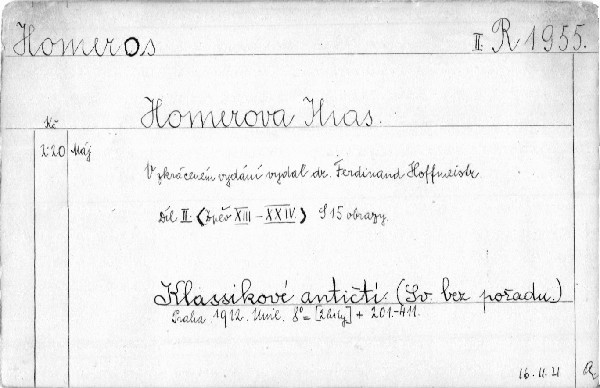 Homeros II. R 1955.
Homerova Ilias.
Kč
2.20 Máj
V zkráceném vydání vydal dr. Ferdinand Hoffmeistr
Díl II. (Zpěv XIII – XXIV.) S 15 obrazy.
Klassikové antičtí. (Sv. bez pořadu.)
Praha. 1912. Unie. 8° = [2 listy] + 201.-411.
16.4.21